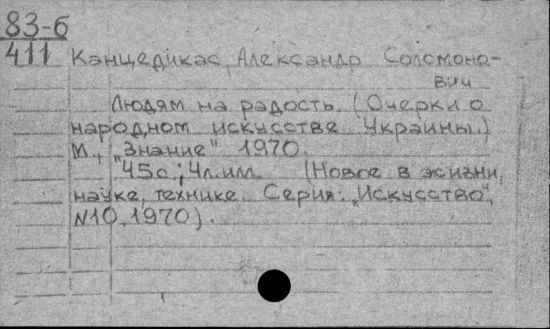 83-б
411 Канцедикас, Александр Соломоно-
вич
Людям на радость. (Очерки о
народном искусстве Украины.)
М., "Знание" 1970.
45с.; 4л.илл. (Новое в жизни,
науке, технике. Серия: "Искусство",
№10, 1970).